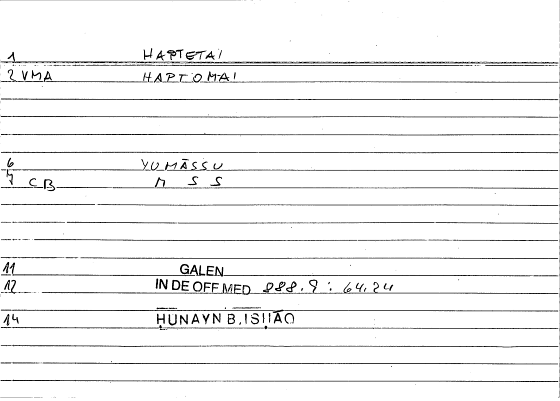 1 HAPTETAI
2 VMA HAPTOMAI
6 YUMĀSSU
7 CB M S S
11 GALEN
12 IN DE OFF MED 888.9 : 64.24
14 ḤUNAYN B. ISḤĀQ